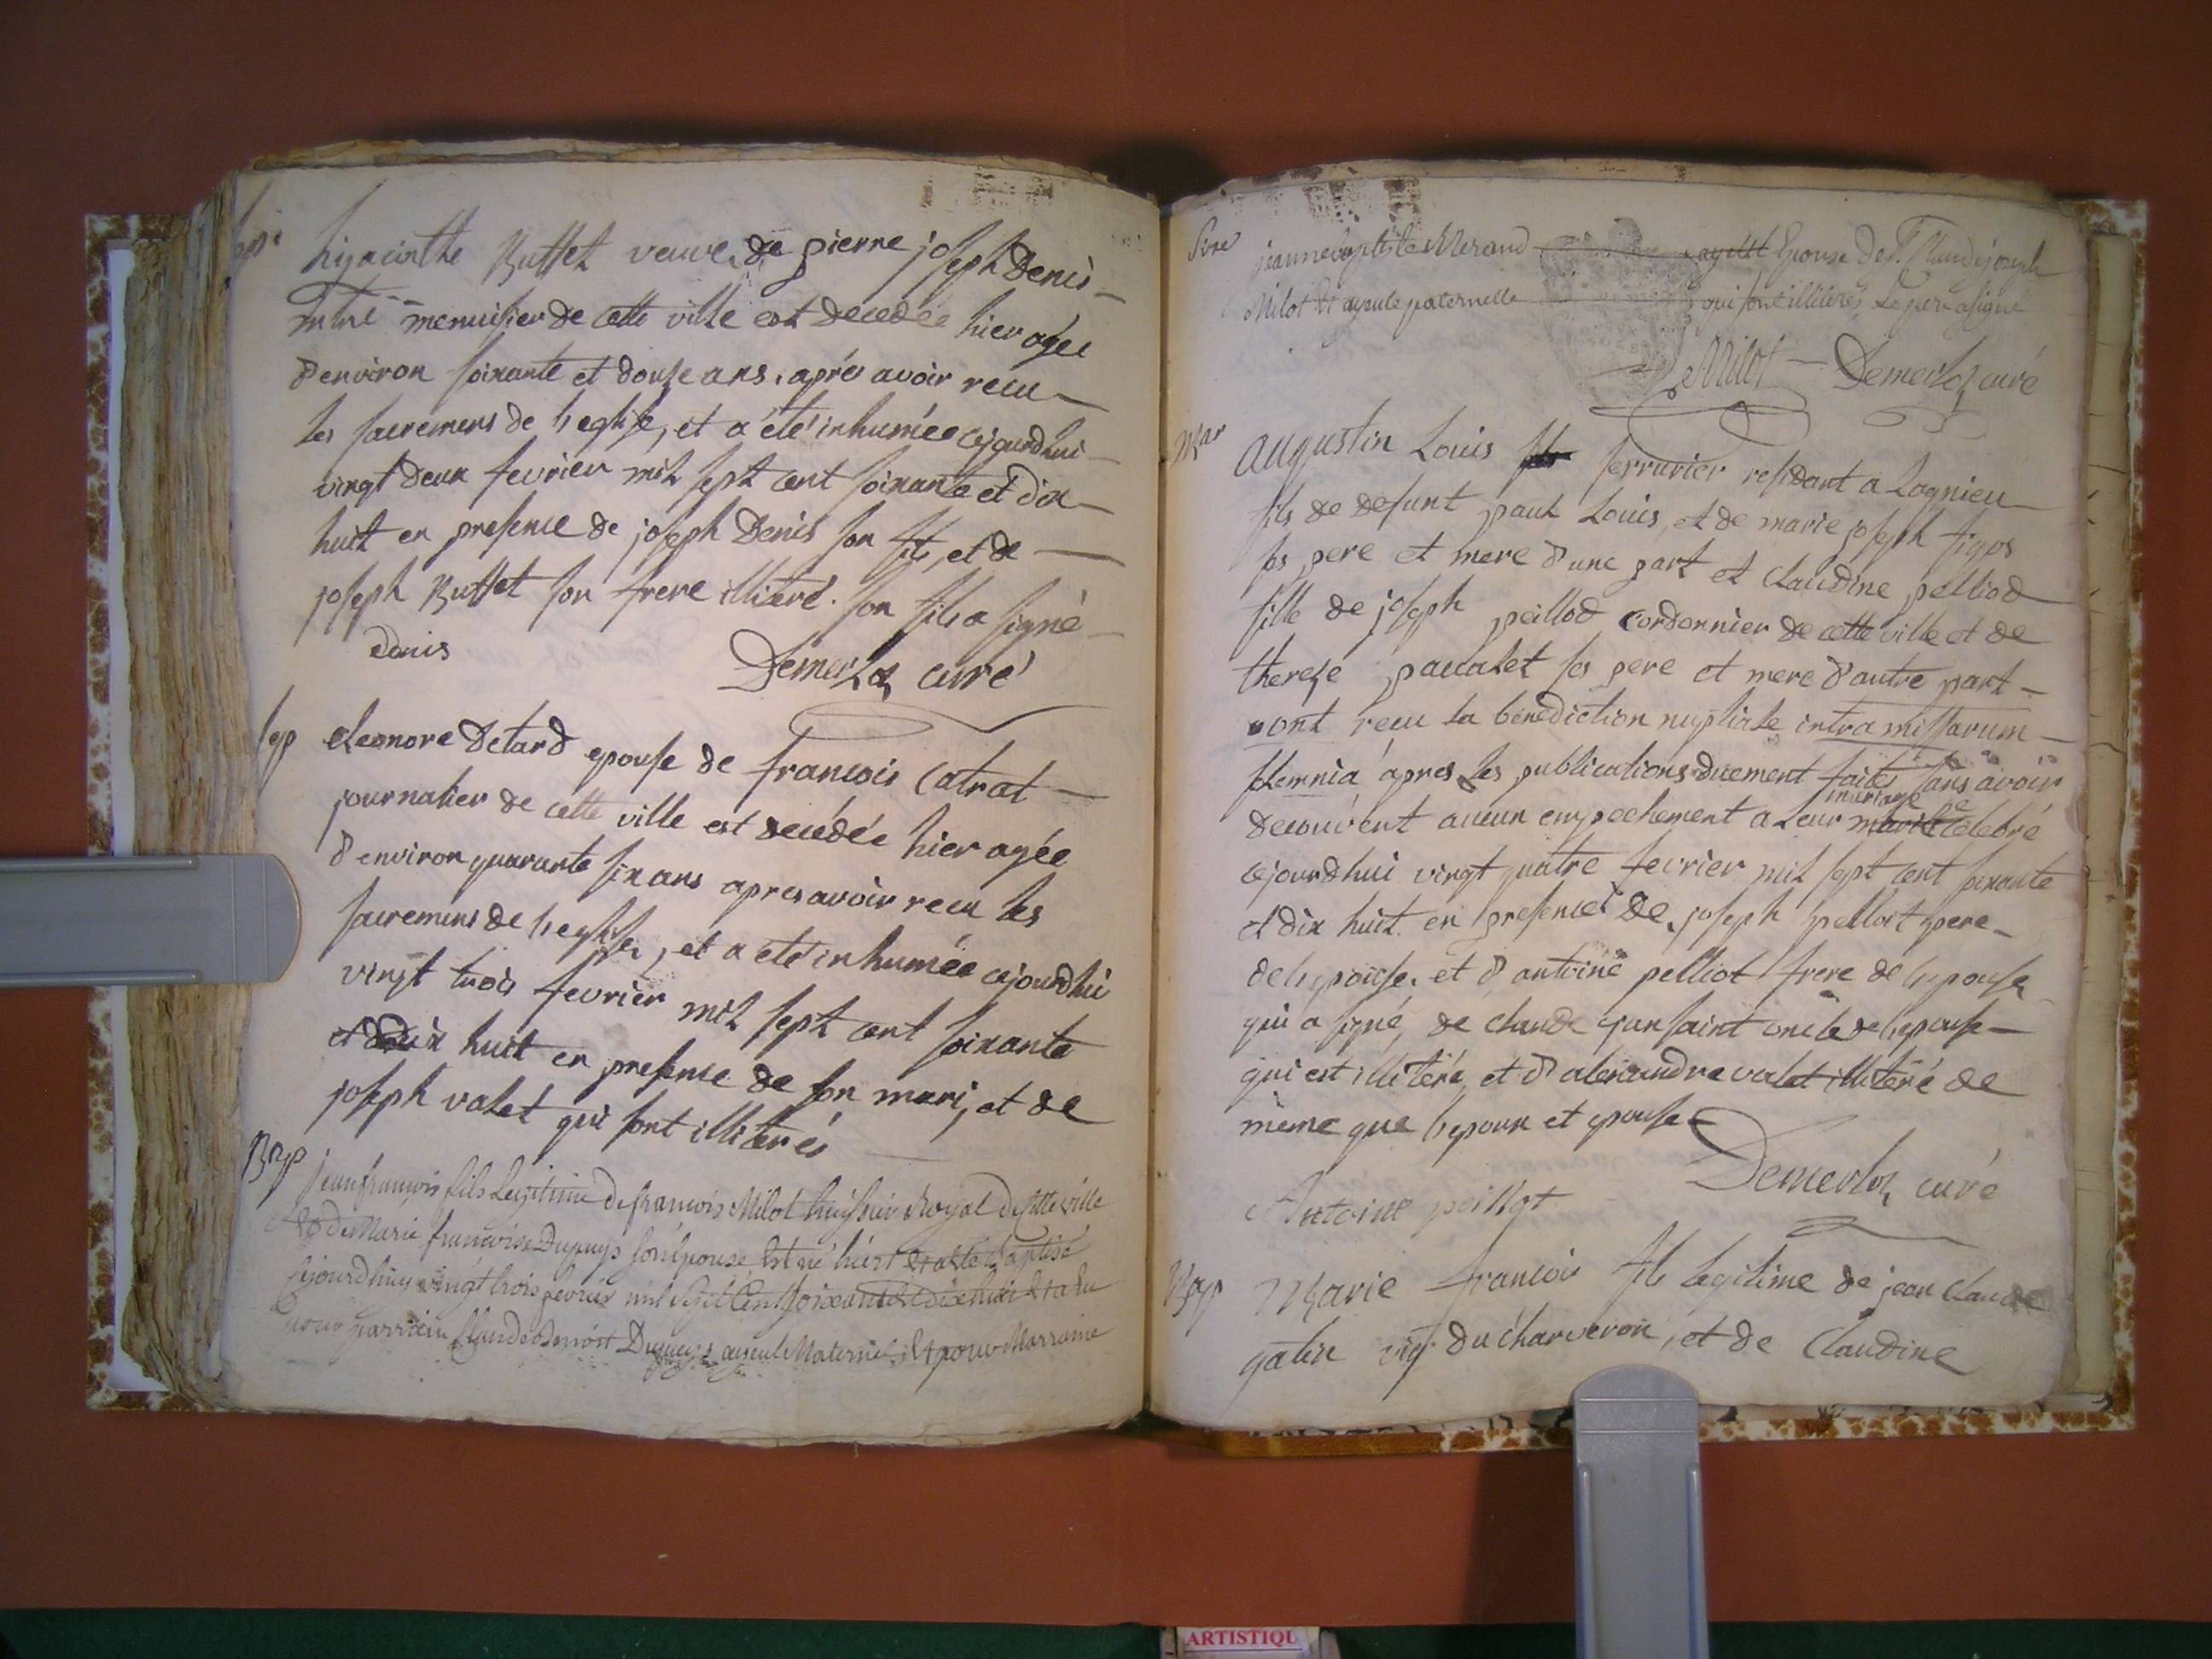 sep
hyacinthe Buffet veuve de pierre joseph Denis
mtre menuisier de cette ville est decedée hier agée
d'environ soixante et douse ans, aprés avoir recu
les sacremens de l'eglise, et a été inhumée cejourdhui
vingt deux fevrier mil sept cent soixante et dix
huit en presence de joseph Denis son fils, et de
joseph Buffet son frere illitéré. son fils a signé
denis
Demerloz curé
sep
eleonore Detard epouse de francois Catrat
journalier de cette ville est decédée hier agée
d'environ quarante six ans apres avoir recu les
sacremens de l'eglise, et a été inhumée cejourdhui
vingt trois fevrier mil sept cent soixante
et dix huit en presence de son mari, et de
joseph valet qui sont illiterés
Bap
jean françois fils legitime de françois Milot huissier Royal de cette ville
& de Marie francoise Dupuys son épouse est né hier & a été baptisé
cejourdhuy vingt trois fevrier mil sept cent soixante et dix huit & a eu
pour parrain Claude Benoit Dupuys ayeul Maternel & pour Marraine
jeanne baptiste Merand Epouse de Sr. Claude joseph
Milot & ayeule paternelle qui sont illiterés, Le pere a signé
Milot Demerloz curé
Mar
augustin Louis serrurier residant a Lagnieu
fils de defunt paul Louis, et de marie joseph figos
ses pere et mere d'une part et Claudine pelliod
fille de joseph peillod cordonnier de cette ville et de
therese pacalet ses pere et mere d'autre part
ont recu la bénediction nuptiale intra missarum
solemnia apres les publications duement faites sans avoir
decouvent aucun empechement a leur mariage célebré
cejourdhui vingt quatre fevrier mil sept cent soixante
et dix huit en presence de joseph pelloit pere
de l'epouse, et d'antoine pelliot frere de l'epouse
qui a signé, de claude jansaint oncle de l'epouse
qui est illitéré, et d'alexandre valet illitéré de
mème que l'epoux et epouse
Demerloz curé
Antoine peillot
Bap
Marie francois fils legitime de jean claude
galin vig. du charveron, et de Claudine
ARTISTIQU